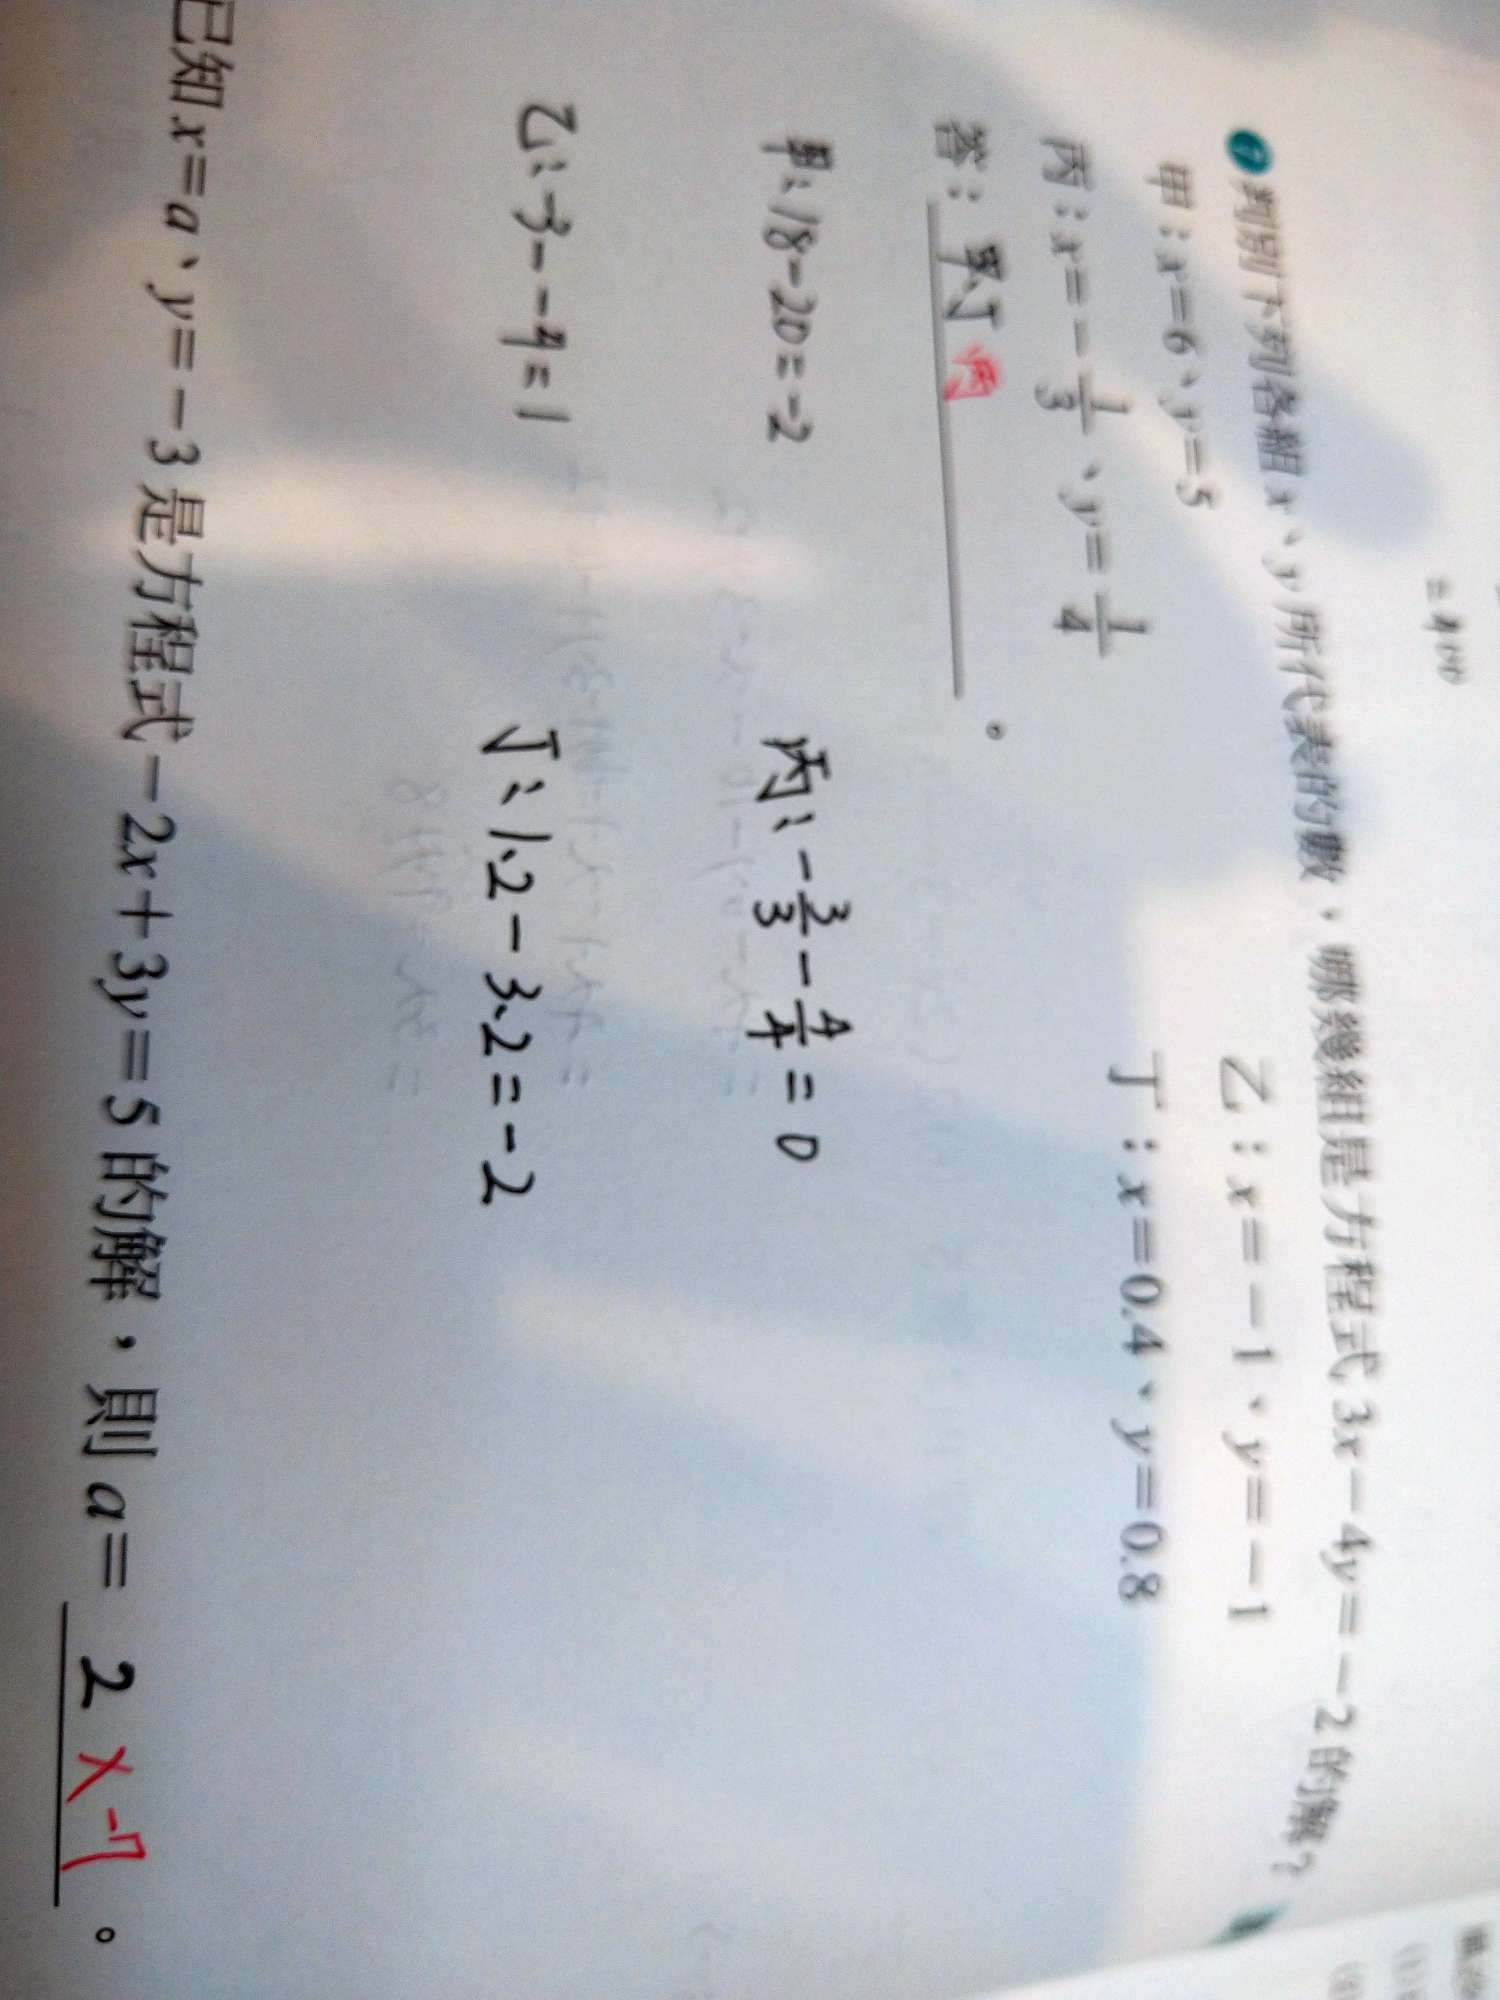 =400
判別下列各組 x、y 所代表的數，哪幾組是方程式 3x－4y＝－2 的解？
甲：x＝6、y＝5
乙：x＝－1、y＝－1
丙：x＝－1/3、y＝1/4
丁：x＝0.4、y＝0.8
答：甲、丁 丙。
甲：18-20=-2
丙：-3/3-4/4=0
乙：-3--4=1
丁：1.2-3.2=-2
已知 x＝a、y＝－3 是方程式－2x＋3y＝5 的解，則 a＝2 x -7。